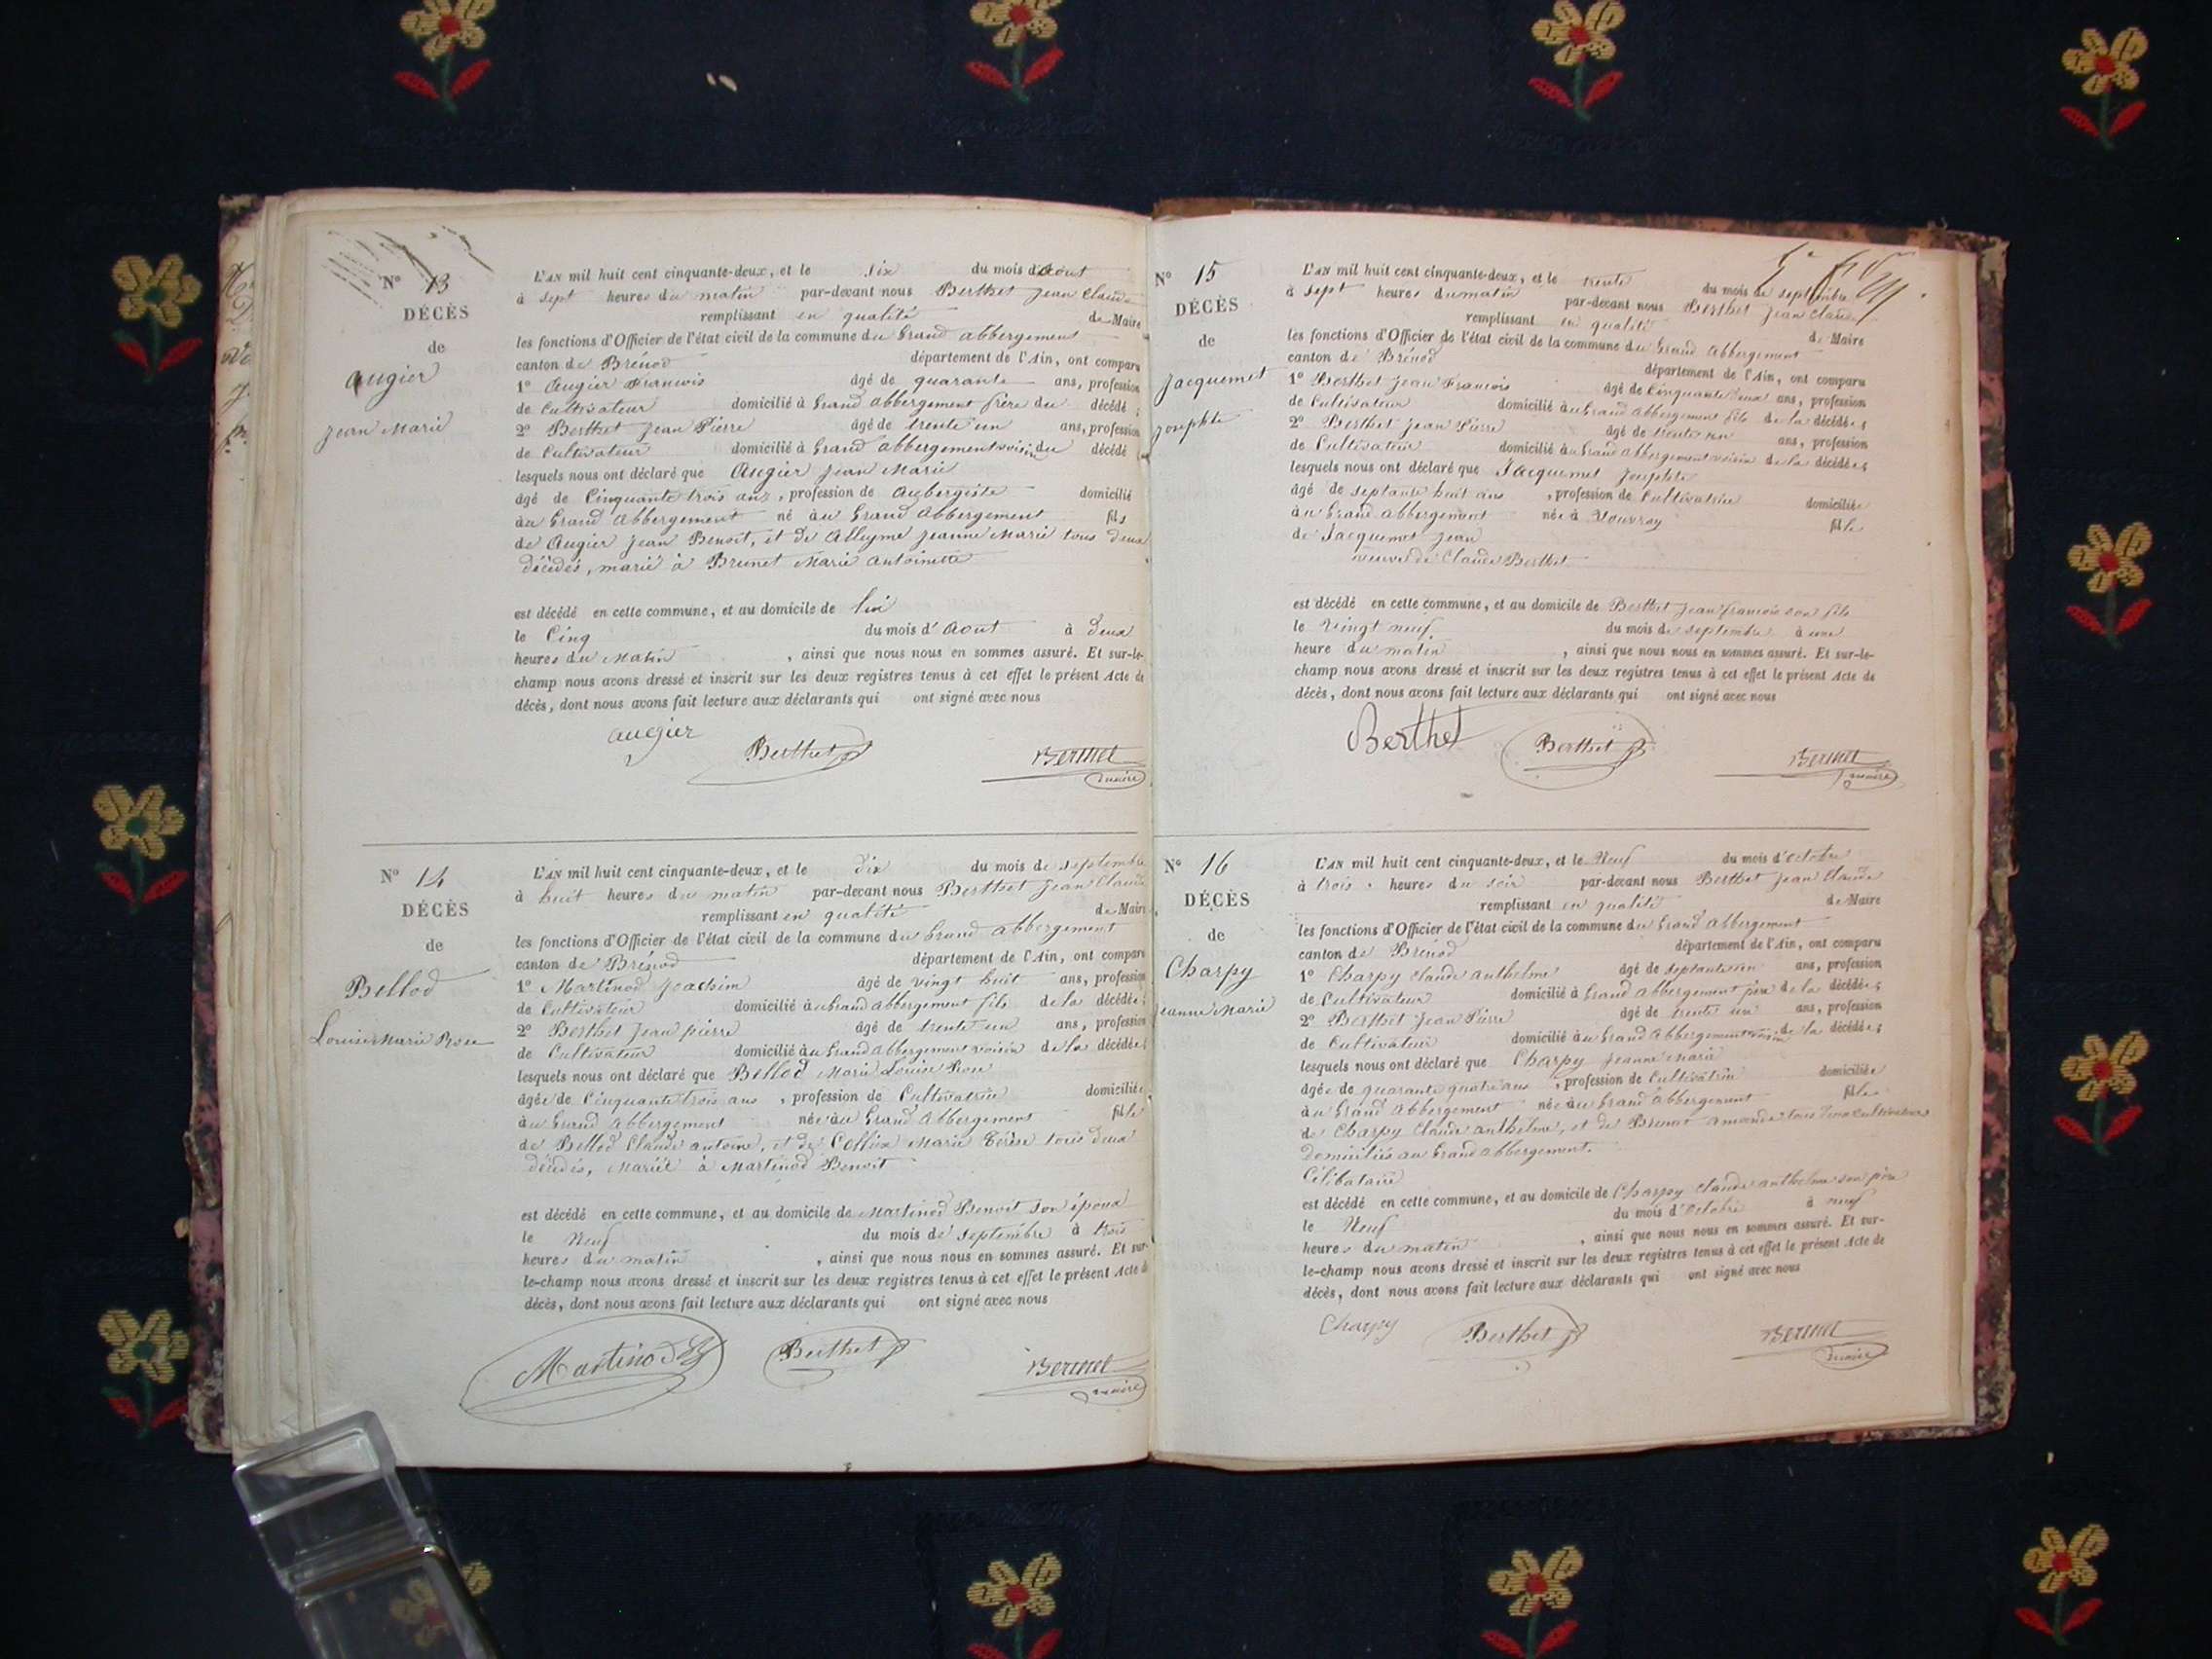 N° 13
DÉCÈS
de
Augier
Jean Marie
L'AN mil huit cent cinquante-deux, et le six du mois d'Aout
à sept heures du matin par-devant nous Berthet Jean Claude
remplissant en qualité de Maire
les fonctions d'Officier de l'état civil de la commune du Grand abbergement
canton de Brénod département de l'Ain, ont comparu
1° Augier Francois âgé de quarante ans, profession
de Cultivateur domicilié à Grand abbergement frère du décédé;
2° Berthet Jean Pierre âgé de trente un ans, profession
de Cultivateur domicilié à Grand abbergement voisin du décédé
lesquels nous ont déclaré que Augier Jean Marie
âgé de Cinquante trois ans, profession de Aubergiste domicilié
au Grand Abbergement né au Grand Abbergement fils
de Augier Jean Benoit, et de Alleyme Jeanne Marie tous deux
décédés, marié à Brunet Marie Antoinette
est décédé en cette commune, et au domicile de lui
le Cinq du mois d'Aout à deux
heures du Matin, ainsi que nous nous en sommes assuré. Et sur-le-
champ nous avons dressé et inscrit sur les deux registres tenus à cet effet le présent Acte de
décès, dont nous avons fait lecture aux déclarants qui ont signé avec nous
augier Berthet Berthet
maire
N° 14
DÉCÈS
de
Bellod
Louise Marie Rose
L'AN mil huit cent cinquante-deux, et le dix du mois de septembre
à huit heures du matin par-devant nous Berthet Jean Claude
remplissant en qualité de Maire
les fonctions d'Officier de l'état civil de la commune du Grand abbergement
canton de Brénod département de l'Ain, ont comparu
1° Martinod Joachim âgé de vingt huit ans, profession
de Cultivateur domicilié au Grand abbergement fils de la décédée;
2° Berthet Jean pierre âgé de trente un ans, profession
de Cultivateur domicilié au Grand abbergement voisin de la décédée;
lesquels nous ont déclaré que Bellod Marie Louise Rose
âgée de Cinquante trois ans, profession de Cultivatrice domiciliée
au Grand Abbergement née au Grand Abbergement fille
de Bellod Claude antoine, et de Collix Marie Térèse tous deux
décédés, Mariée à Martinod Benoit
est décédé en cette commune, et au domicile de Martinod Benoit son époux
le Neuf du mois de septembre à trois
heures du matin, ainsi que nous nous en sommes assuré. Et sur-
le-champ nous avons dressé et inscrit sur les deux registres tenus à cet effet le présent Acte de
décès, dont nous avons fait lecture aux déclarants qui ont signé avec nous
Martinod Berthet Berthet
maire
N° 15
DÉCÈS
de
Jacquemet
Josephte
L'AN mil huit cent cinquante-deux, et le trente du mois de septembre
à sept heures du matin par-devant nous Berthet Jean Claude
remplissant en qualité de Maire
les fonctions d'Officier de l'état civil de la commune du Grand Abbergement
canton de Brénod département de l'Ain, ont comparu
1° Berthet Jean Francois âgé de Cinquante deux ans, profession
de Cultivateur domicilié au Grand Abbergement fils de la décédée;
2° Berthet Jean Pierre âgé de trente un ans, profession
de Cultivateur domicilié au Grand Abbergement voisin de la décédée;
lesquels nous ont déclaré que Jacquemet Josephte
âgé de septante huit ans, profession de Cultivatrice domiciliée
au Grand abbergement née à fille
de Jacquemet Jean
veuve de Claude Berthet
est décédé en cette commune, et au domicile de Berthet Jean francois son fils
le Vingt neuf du mois de septembre à une
heure du matin, ainsi que nous nous en sommes assuré. Et sur-le-
champ nous avons dressé et inscrit sur les deux registres tenus à cet effet le présent Acte de
décès, dont nous avons fait lecture aux déclarants qui ont signé avec nous
Berthet Berthet Berthet
maire
N° 16
DÉCÈS
de
Charpy
Jeanne Marie
L'AN mil huit cent cinquante-deux, et le Neuf du mois d'Octobre
à trois heures du soir par-devant nous Berthet Jean Claude
remplissant en qualité de Maire
les fonctions d'Officier de l'état civil de la commune du Grand Abbergement
canton de Brénod département de l'Ain, ont comparu
1° Charpy Claude anthelme âgé de ans, profession
de Cultivateur domicilié à Grand Abbergement père de la décédée;
2° Berthet Jean Pierre âgé de trente un ans, profession
de Cultivateur domicilié au Grand Abbergement voisin de la décédée;
lesquels nous ont déclaré que Charpy Jeanne Marie
âgée de quarante quatre ans, profession de Cultivatrice domiciliée
au Grand Abbergement née au Grand Abbergement fille
de Charpy Claude anthelme, et de Brunot amande tous deux cultivateurs
domiciliés au Grand abbergement.
Célibataire
est décédé en cette commune, et au domicile de Charpy Claude anthelme son père
le Neuf du mois d'Octobre à neuf
heures du matin, ainsi que nous nous en sommes assuré. Et sur-
le-champ nous avons dressé et inscrit sur les deux registres tenus à cet effet le présent Acte de
décès, dont nous avons fait lecture aux déclarants qui ont signé avec nous
Charpy Berthet Berthet
maire